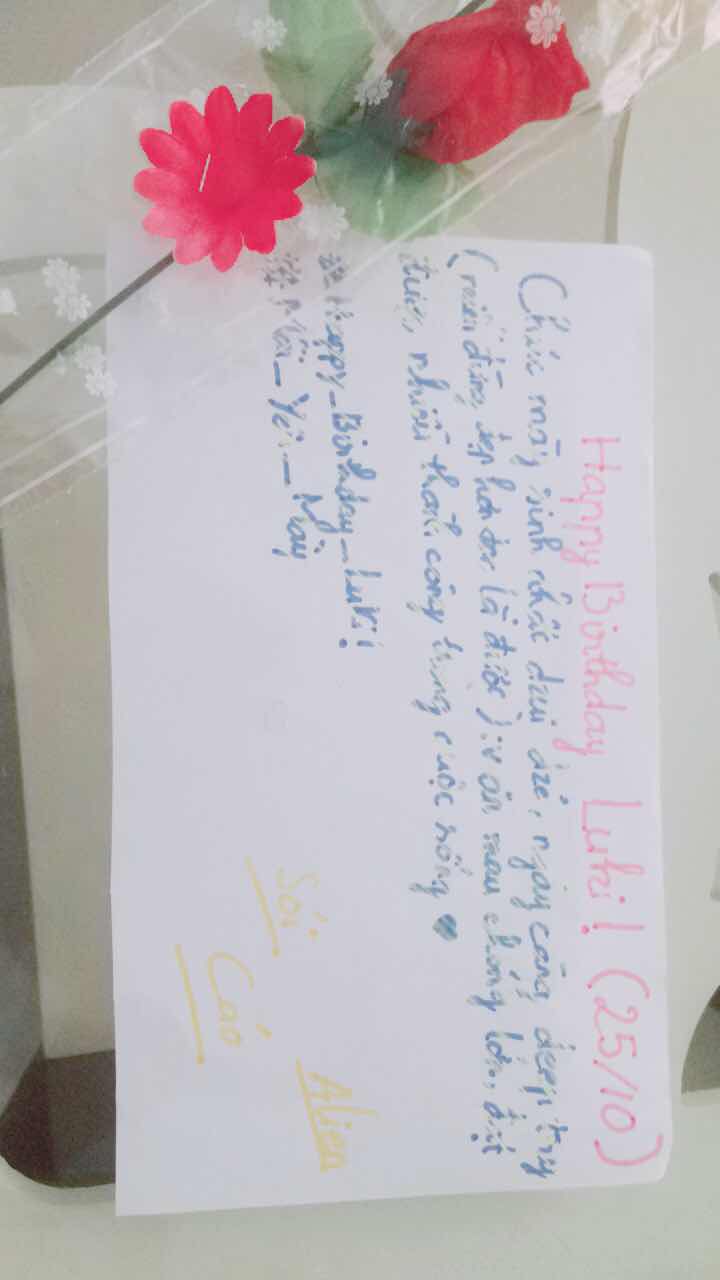 Happy Birthday Luki! (25/10)
Chúc mày sinh nhật dzui dzẻ, ngày càng deep try
(miễn đừng đẹp hơn tao là được) :v ăn mau chóng lớn, đạt
được nhiều thành công trong cuộc sống ♥
#Happy_Birthday_Luki!
_Yêu_Mày
Sói
Cáo
Alien